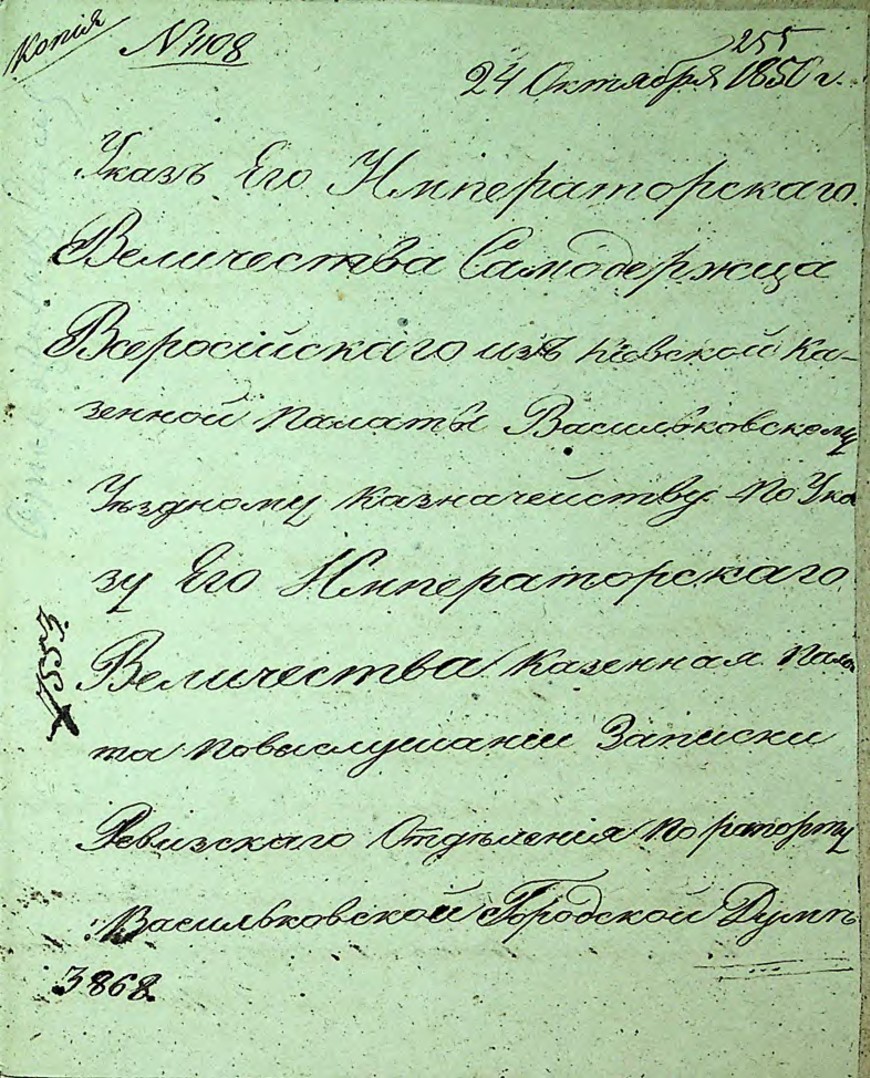 Копія
№ 1108
255
24 Октября 1850 г.
Указъ Его Императорскаго
Величества Самодержца
Всеросійскаго изъ Кіевской Ка-
зенной Палаты Васильковскому
Уѣздному Казначейству. По Ука
зу Его Императорскаго
Величества Казенная Пала
та повыслушаніи Записки
Ревизскаго Отдѣленія по рапорту
Васильковской Городской Думы
3868.